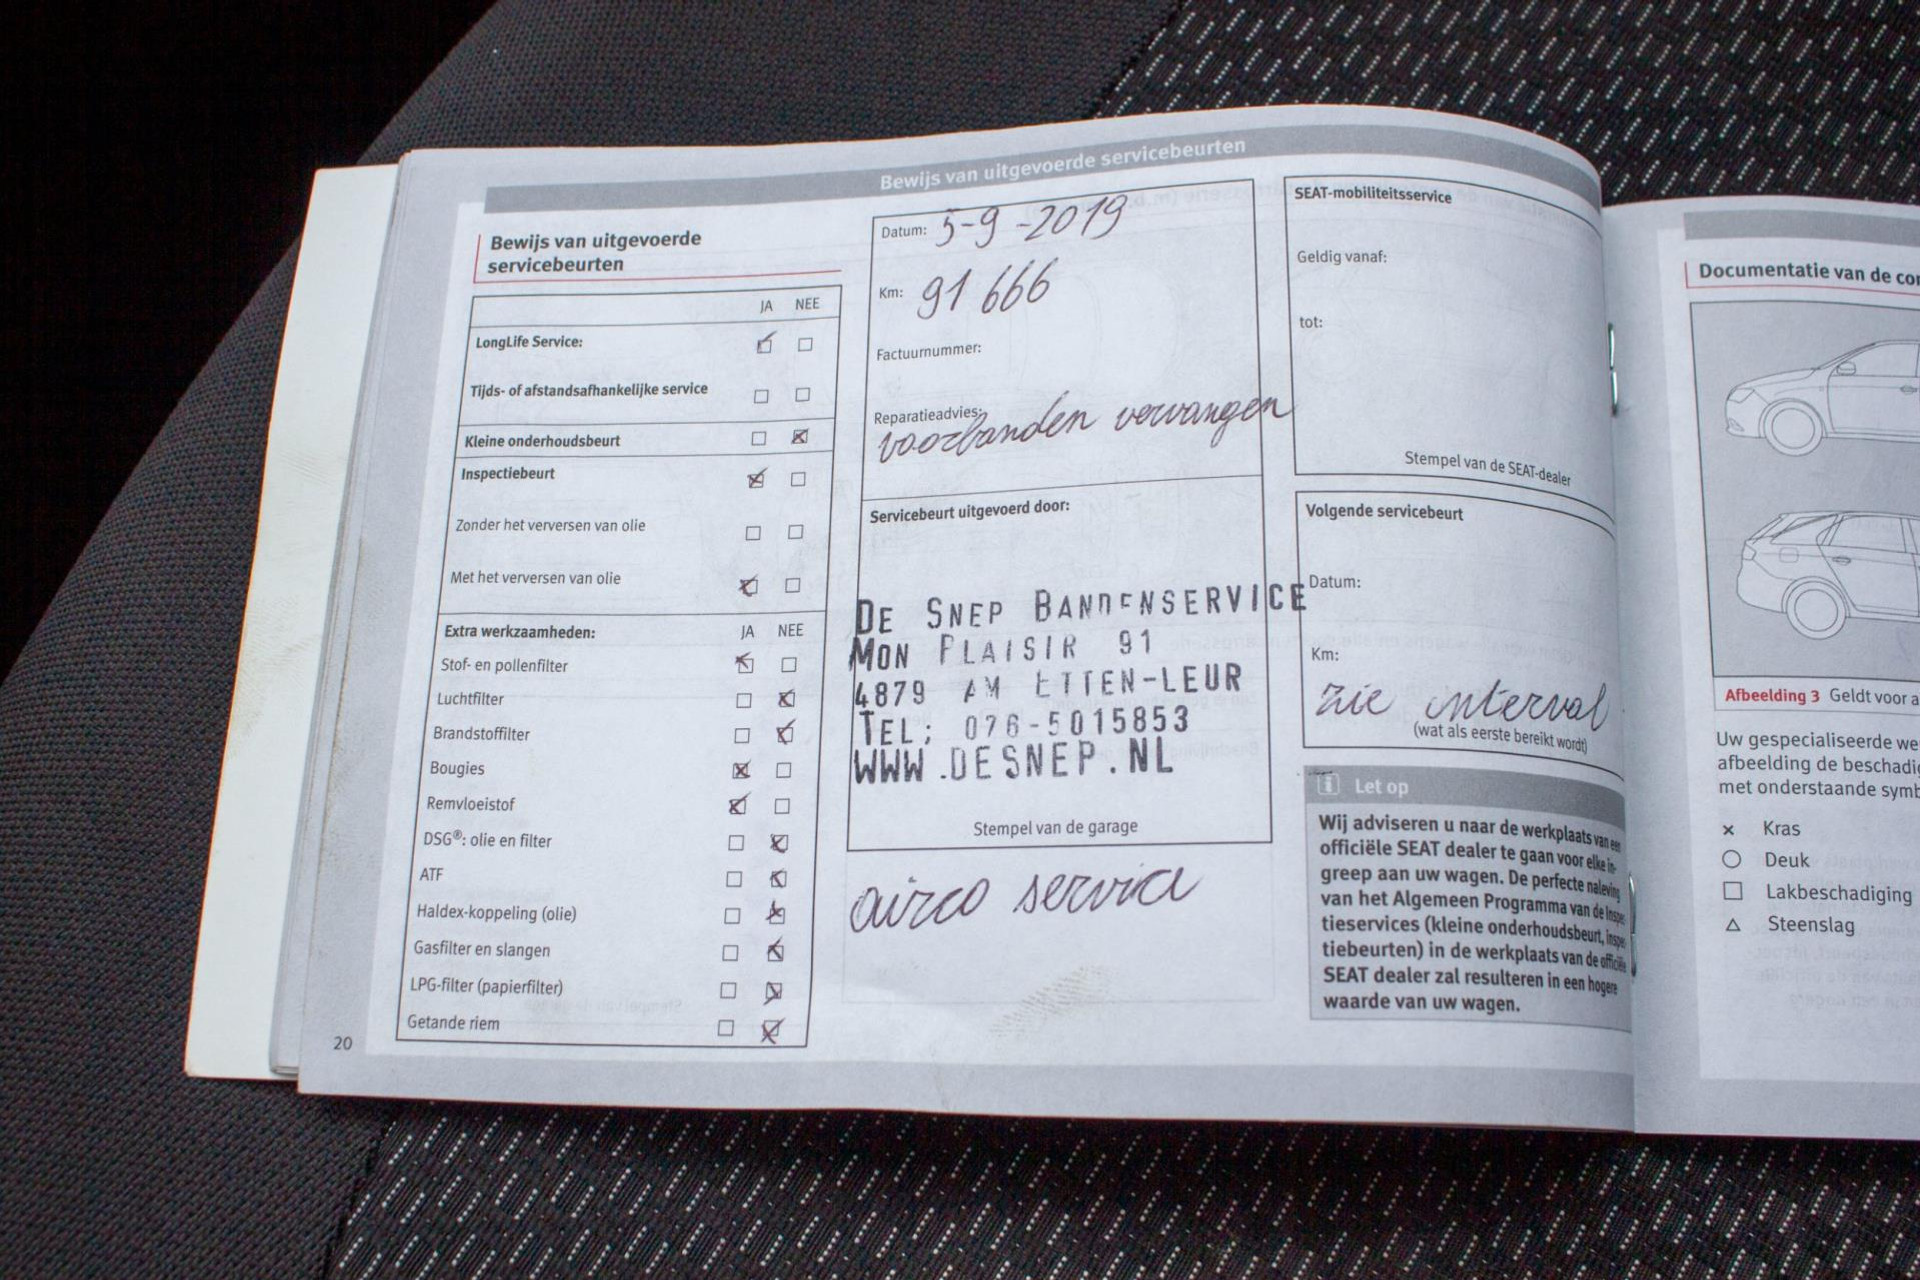 Bewijs van uitgevoerde servicebeurten
Bewijs van uitgevoerde
servicebeurten
JA NEE
LongLife Service:
Tijds- of afstandsafhankelijke service
Kleine onderhoudsbeurt
Inspectiebeurt
Zonder het verversen van olie
Met het verversen van olie
Extra werkzaamheden: JA NEE
Stof- en pollenfilter
Luchtfilter
Brandstoffilter
Bougies
Remvloeistof
DSG®: olie en filter
ATF
Haldex-koppeling (olie)
Gasfilter en slangen
LPG-filter (papierfilter)
Getande riem
20
Datum: 5-9-2019
Km: 91 666
Factuurnummer:
Reparatieadvies:
voorbanden vervangen
Servicebeurt uitgevoerd door:
DE SNEP BANDENSERVICE
MON PLAISIR 91
4879 AM ETTEN-LEUR
TEL: 076-5015853
WWW.DESNEP.NL
Stempel van de garage
airco service
SEAT-mobiliteitsservice
Geldig vanaf:
tot:
Stempel van de SEAT-dealer
Volgende servicebeurt
Datum:
Km:
zie interval
(wat als eerste bereikt wordt)
Let op
Wij adviseren u naar de werkplaats van een
officiële SEAT dealer te gaan voor elke in-
greep aan uw wagen. De perfecte naleving
van het Algemeen Programma van de Inspec-
tieservices (kleine onderhoudsbeurt, inspec-
tiebeurten) in de werkplaats van de officiële
SEAT dealer zal resulteren in een hogere
waarde van uw wagen.
Documentatie van de
Afbeelding 3 Geldt voor
Uw gespecialiseerde
afbeelding de
met onderstaande
Kras
Deuk
Lakbeschadiging
Steenslag